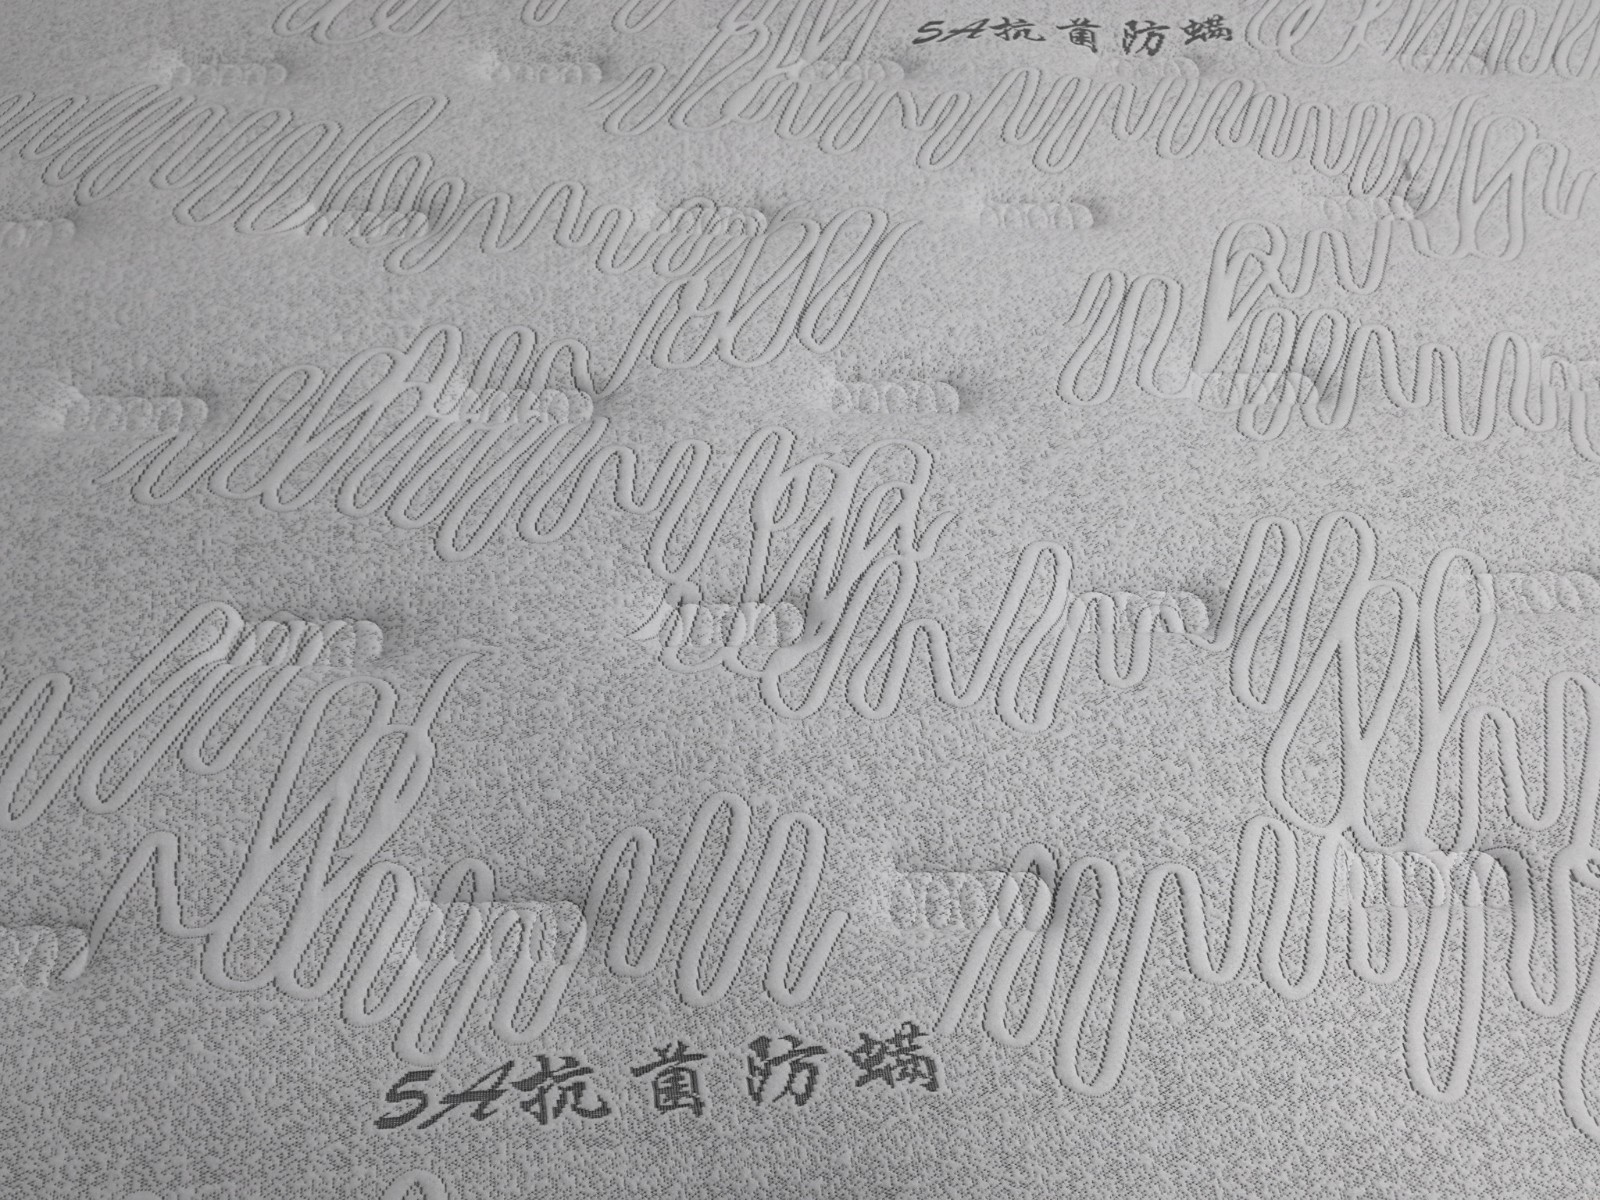 5A抗菌防螨
5A抗菌防螨